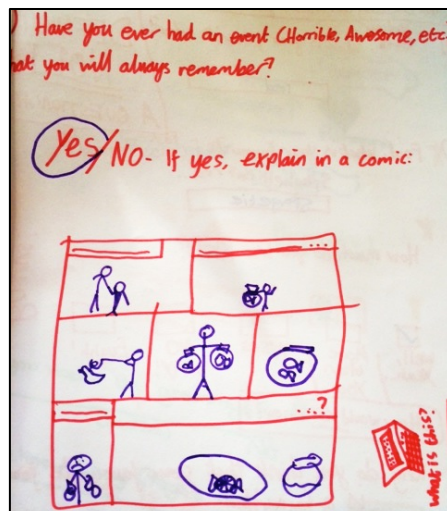 ) Have you ever had an event (Horrible, Awesome, etc
at you will always remember?
Yes/NO- If yes, explain in a comic:
...
...?
What is this?